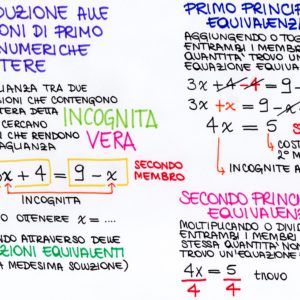 DUZIONE ALLE
ONI DI PRIMO
NUMERICHE
TERE
GLIANZA TRA DUE
SIONI CHE CONTENGONO
TERA DETTA INCOGNITA
CERCANO
I CHE RENDONO VERA
AGLIANZA
x + 4 = 9 - x SECONDO
MEMBRO
INCOGNITA
O OTTENERE x = ....
NDO ATTRAVERSO DELLE
ZIONI EQUIVALENTI
A MEDESIMA SOLUZIONE)
PRIMO PRINCIP
EQUIVALENZA
AGGIUNGENDO O TOG
ENTRAMBI I MEMBR
QUANTITA' TROVO UN'E
EQUAZIONE EQUIVA
3x + 4 - 4 = 9 - x
3x + x = 9 -
4x = 5 S
COST
2° M
INCOGNITE A
SECONDO PRINC
EQUIVALEN
MOLTIPLICANDO O DIVID
ENTRAMBI I MEMBRI
STESSA QUANTITA' NON
TROVO UN'EQUAZION
4x = 5 TROVO
4 4